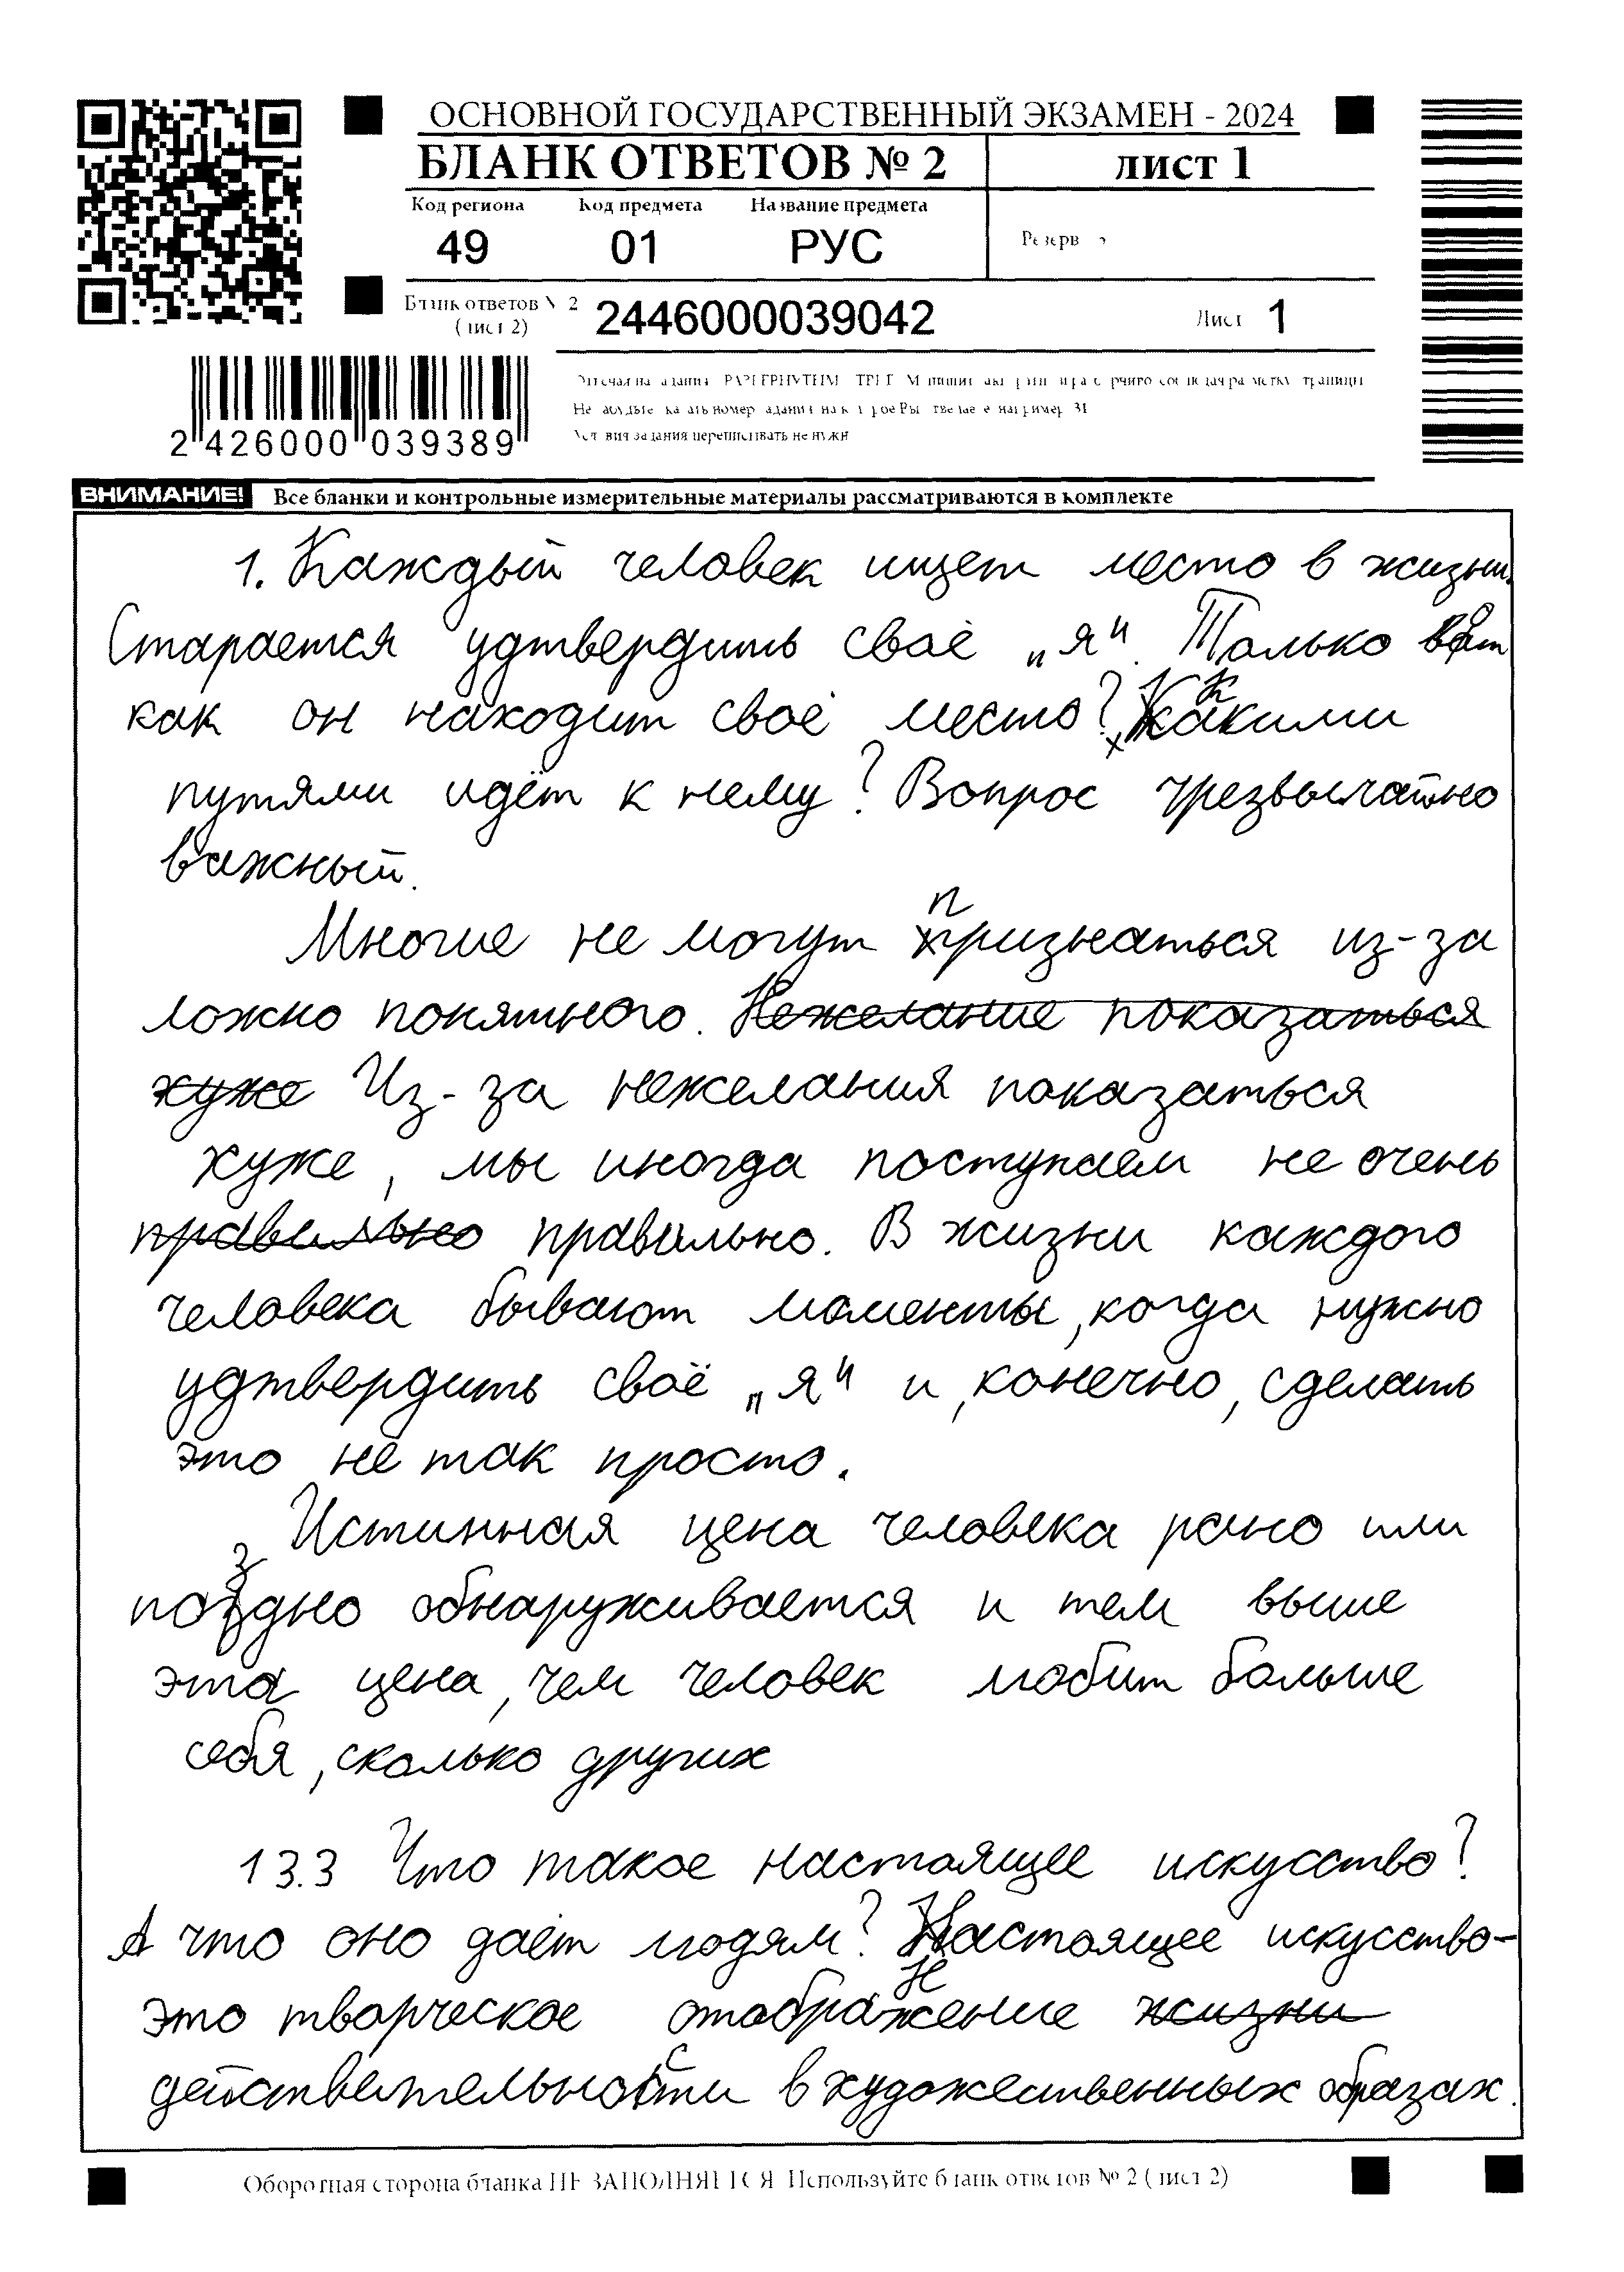 ОСНОВНОЙ ГОСУДАРСТВЕННЫЙ ЭКЗАМЕН - 2024
БЛАНК ОТВЕТОВ № 2 лист 1
Код региона Код предмета Название предмета
49 01 РУС
Резерв
Бланк ответов № 2 (лист 2) 2446000039042 Лист 1
2 426000 039389
ВНИМАНИЕ! Все бланки и контрольные измерительные материалы рассматриваются в комплекте
1. Каждый человек ищет место в жизни.
Старается удтвердить своё „я". Только вот
как он находит своё место? Какими
путями идёт к нему? Вопрос чрезвычайно
важный.
Многие не могут признаться из-за
ложно понятного. Нежелание показаться
хуже Из-за нежелания показаться
хуже, мы иногда поступаем не очень
правильно правильно. В жизни каждого
человека бывают моменты, когда нужно
удтвердить своё „я" и, конечно, сделать
это не так просто.
Истинная цена человека рано или
поздно обнаруживается и тем выше
эта цена, чем человек любит больше
себя, сколько других
13.3 Что такое настоящее искусство?
А что оно даёт людям? Настоящее искусство-
это творческое отображение жизни
действительности в художественных образах.
Оборотная сторона бланка НЕ ЗАПОЛНЯЕТСЯ. Используйте бланк ответов № 2 (лист 2)